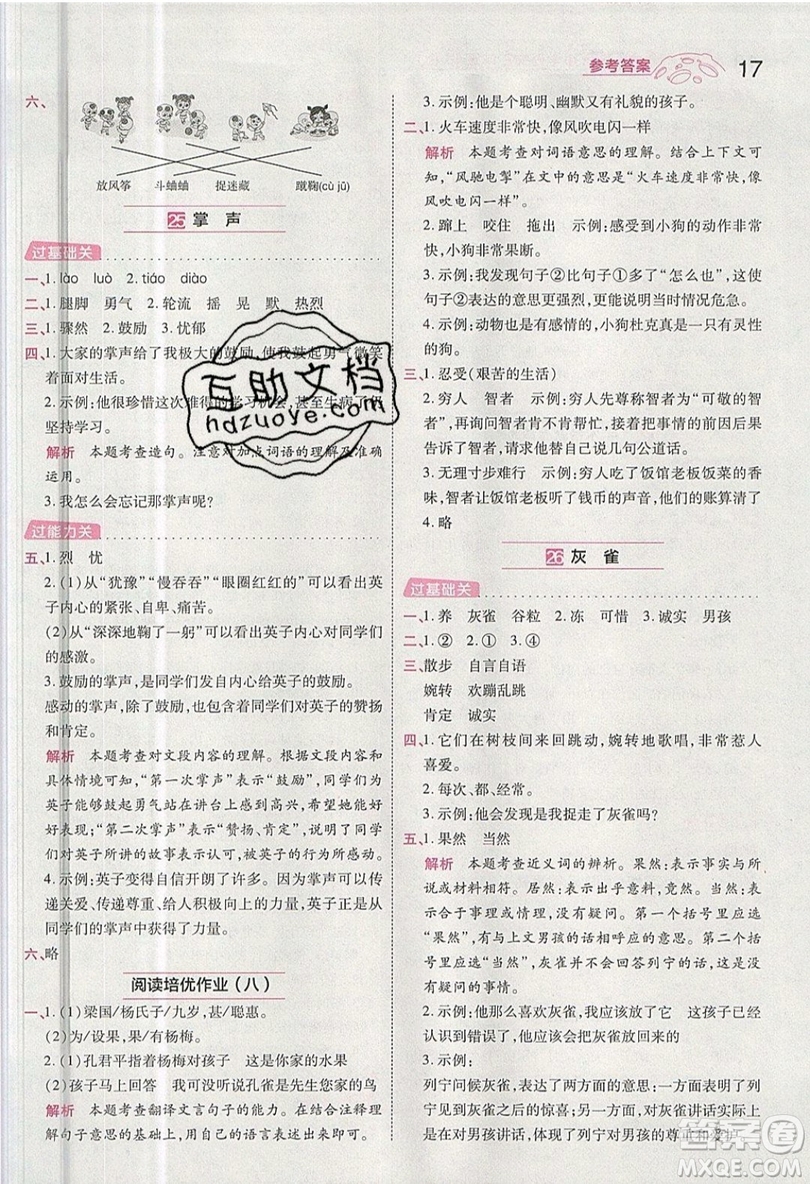 参考答案 17
六、
放风筝 斗蛐蛐 捉迷藏 蹴鞠(cù jū)
25 掌 声
过基础关
一、1. lào luò 2. tiáo diào
二、1. 腿脚 勇气 2. 轮流 摇 晃 默 热烈
三、1. 骤然 2. 鼓励 3. 忧郁
四、1. 大家的掌声给了我极大的鼓励,使我鼓起勇气微笑
着面对生活。
2. 示例:他很珍惜这次难得的学习机会,
坚持学习。
解析 本题考查造句。注意对加点词语的理解及准确
运用。
3. 我怎么会忘记那掌声呢?
过能力关
五、1. 烈 忧
2. (1)从“犹豫”“慢吞吞”“眼圈红红的”可以看出英
子内心的紧张、自卑、痛苦。
(2)从“深深地鞠了一躬”可以看出英子内心对同学们
的感激。
3. 鼓励的掌声,是同学们发自内心给英子的鼓励。
感动的掌声,是同学们在了解英子后对英子的赞扬
和肯定。
解析 本题考查对文段内容的理解。根据文段内容和
具体情境可知,“第一次掌声”表示“鼓励”,同学们为
英子能够鼓起勇气站在讲台上感到高兴,希望她能好
好表现;“第二次掌声”表示“赞扬、肯定”,说明了同学们对
英子所讲的故事及敢于表达的行为所感动。
4. 示例:英子变得自信开朗了许多。因为掌声可以传
递关爱、传递尊重、给人积极向上的力量。英子正是从
同学们的掌声中获得了这些力量。
六、略
阅读培优作业(八)
一、1. (1)梁国/杨氏子/九岁,甚/聪惠。
(2)为/设果,果/有杨梅。
2. (1)孔君平指着杨梅对孩子 这是你家的水果
(2)孩子马上回答 我可没听说孔雀是先生您家的鸟
解析 本题考查翻译文言句子的能力。在
句子意思的基础上,用自己的话说出来即可。
3. 示例:他是个聪明、幽默又有礼貌的孩子。
二、1. 火车速度非常快,像风吹电闪一样
解析 本题考查对词语意思的理解。结合上下文可
知,“风驰电掣”在文中的意思是“火车速度非常快,像
风吹电闪一样”。
2. 蹿上 咬住 拖出 示例:感受到小狗的动作非常
快,小狗非常果断。
3. 示例:我发现句子②比句子①多了“怎么也”,这使
句子②表达的意思更强烈,更突出了情况的危急。
4. 示例:动物也是有感情的,小狗杜克真是一只有灵性
的狗。
三、1. 忍受(艰苦的生活)
2. 穷人 智者 示例:穷人先尊称智者为“可敬的智
者”,再询问智者肯不肯帮忙,接着把事情的前因后果
告诉了智者,然后请求智者替自己说几句公道话。
3. 无理寸步难行 示例:穷人吃了饭馆老板饭菜的香
味,智者让饭馆老板听了钱币的声音,他们的账算清了
4. 略
26 灰 雀
过基础关
一、1. 养 灰雀 谷粒 2. 冻 可惜 3. 诚实 男孩
二、1. ② 2. ① 3. ④
三、散步 自言自语
婉转 欢蹦乱跳
肯定 诚实
四、1. 它们在树枝间来回跳动,婉转地歌唱,非常惹人
喜爱。
2. 每次、都、经常。
3. 示例:他会发现是我捉走了灰雀吗?
五、1. 果然 当然
解析 本题考查近义词的辨析。果然:表示事实与所
说或所料相符。居然:表示出乎意料,竟然。当然:表
示合于事理或情理,没有疑问。第一个括号里应选
“果然”,与上文男孩的话相呼应,表示事实与男孩所
说的相符合,灰雀还在公园里。第二个括号里应选
“当然”,表示没有疑问,因为列宁
2. 示例:他那么喜欢灰雀,我应该放了它 这孩子已经
认识到错误了,灰雀应该是他放回来的
3. 示例:
列宁问候灰雀,表达了两方面的意思:一方面表现了列
宁见到灰雀之后的惊喜;另一方面,对灰雀讲话实际上
是在对男孩讲话,体现了列宁对男孩的尊重和爱护。
互助文档
hdzuoye.com
答案圈
MXQE.COM